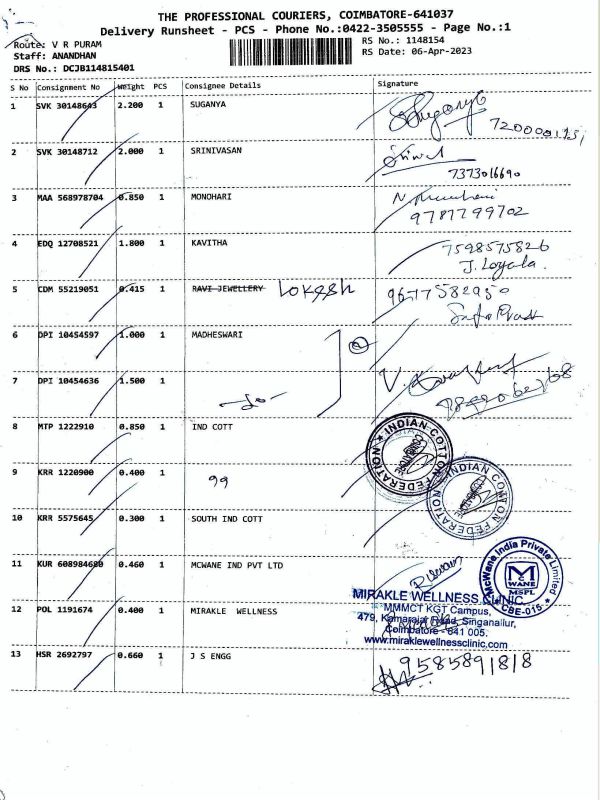 THE PROFESSIONAL COURIERS, COIMBATORE-641037
Delivery Runsheet - PCS - Phone No.:0422-3505555 - Page No.:1
Route: V R PURAM
RS No.: 1148154
Staff: ANANDHAN
RS Date: 06-Apr-2023
DRS No.: DCJB114815401
S No Consignment No Weight PCS Consignee Details Signature
1 SVK 30148643 2.200 1 SUGANYA
2 SVK 30148712 2.000 1 SRINIVASAN
7373016690
3 MAA 568978704 0.850 1 MONOHARI
9787799702
4 EDQ 12708521 1.800 1 KAVITHA 7598575826
J. Loyala.
5 CDM 55219051 0.415 1 RAVI JEWELLERY Lokesh 9677582950
6 DPI 10454597 1.000 1 MADHESWARI
7 DPI 10454636 1.500 1
8 MTP 1222910 0.850 1 IND COTT
INDIAN COTTON FEDERATION
9 KRR 1220900 0.400 1 99
INDIAN COTTON FEDERATION
10 KRR 5575645 0.300 1 SOUTH IND COTT
11 KUR 608984680 0.460 1 MCWANE IND PVT LTD
McWane India Private Limited
M
C
WANE
MSPL
CBE-015
12 POL 1191674 0.400 1 MIRAKLE WELLNESS
MIRAKLE WELLNESS CLINIC
MMMCT KGT Campus,
479, Kamarajar Road, Singanallur,
Coimbatore - 641 005.
www.miraklewellnessclinic.com
13 HSR 2692797 0.660 1 J S ENGG 9585891818